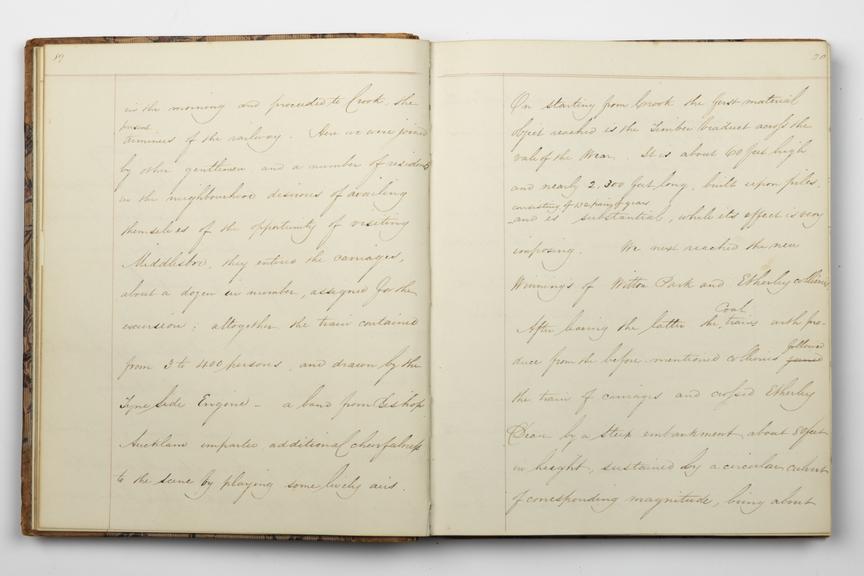 19
in the morning and proceeded to Crook, the
present
terminus of the railway. Here we were joined
by other gentlemen and a number of residents
in the neighbourhood desirous of availing
themselves of the opportunity of visiting
Middlesbro, they entered the carriages,
about a dozen in number, assigned for the
excursion; altogether the train contained
from 3 to 400 persons, and drawn by the
Tyne side Engine — a band from Bishop
Auckland imparted additional cheerfulness
to the scene by playing some lively airs.
20
On starting from Crook the first material
object reached is the Timber Viaduct across the
vale of the Wear. It is about 60 feet high
and nearly 2,300 feet long, built upon piles,
consisting of pairs of
and is substantial, while its effect is very
imposing. We next reached the new
Winnings of Witton Park and Etherley collieries
Coal
After leaving the latter the trains with pro-
followed
duce from the before mentioned collieries joined
the train of carriages and crossed Etherley
Dean by a steep embankment about 80 feet
in height, sustained by a circular culvert
of corresponding magnitude, being about